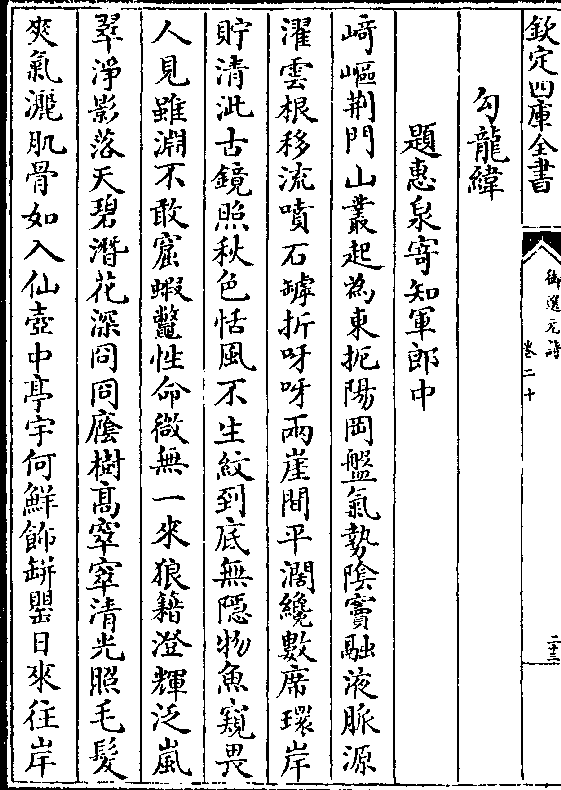 欽定四庫全書
御選元詩
卷二十
二十三
勾龍緯
題惠泉寄知軍郎中
﨑嶇荆門山叢起為東扼陽岡盤氣勢隂竇融液脈源
濯雲根移流噴石罅折呀呀兩崖間平濶纔數席環岸
貯清泚古鏡照秋色恬風不生紋到底無隱物魚窺畏
人見雖淵不敢窟蝦鼈性命微無一來狼籍澄輝泛嵐
翠淨影落天碧濳花深冏冏廕樹髙窣窣清光照毛髮
爽氣灑肌骨如入仙壺中亭宇何鮮飾缾罌日來往岸